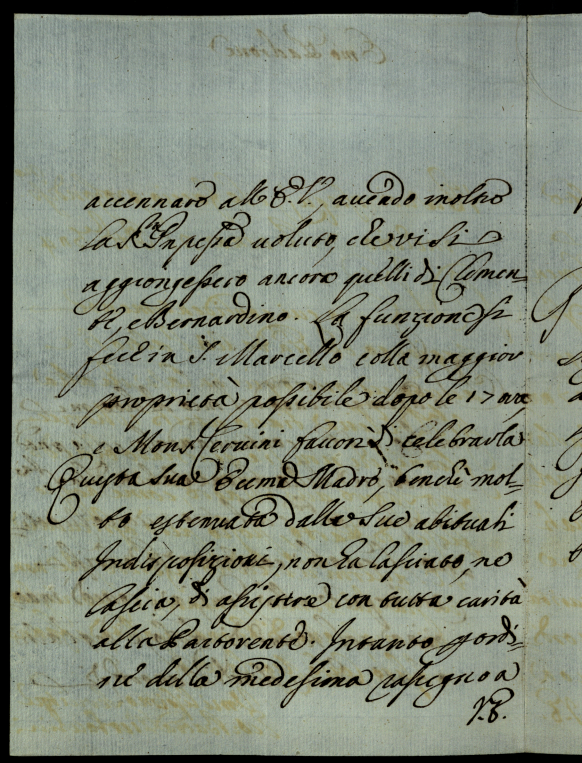 accennato all' E. V., avendo inoltre
la Sig.ra Pnpessa voluto, che vi si
aggiongessero ancora quelli di Clemen-
te, e Bernardino. La funzione si
fece in S. Marcello colla maggior
proprietà possibile dopo le 17 ore,
e Mons. Cervini favorì di celebrarla
Questa sua Ecc.ma Madre, benchè mol-
to estenuata dalle sue abituali
Indisposizioni, non ha lasciato, ne
lascia, di assistere con tutta carità
alla Partorente. Intanto p ordi-
ne della medesima rassegno a
V. E.